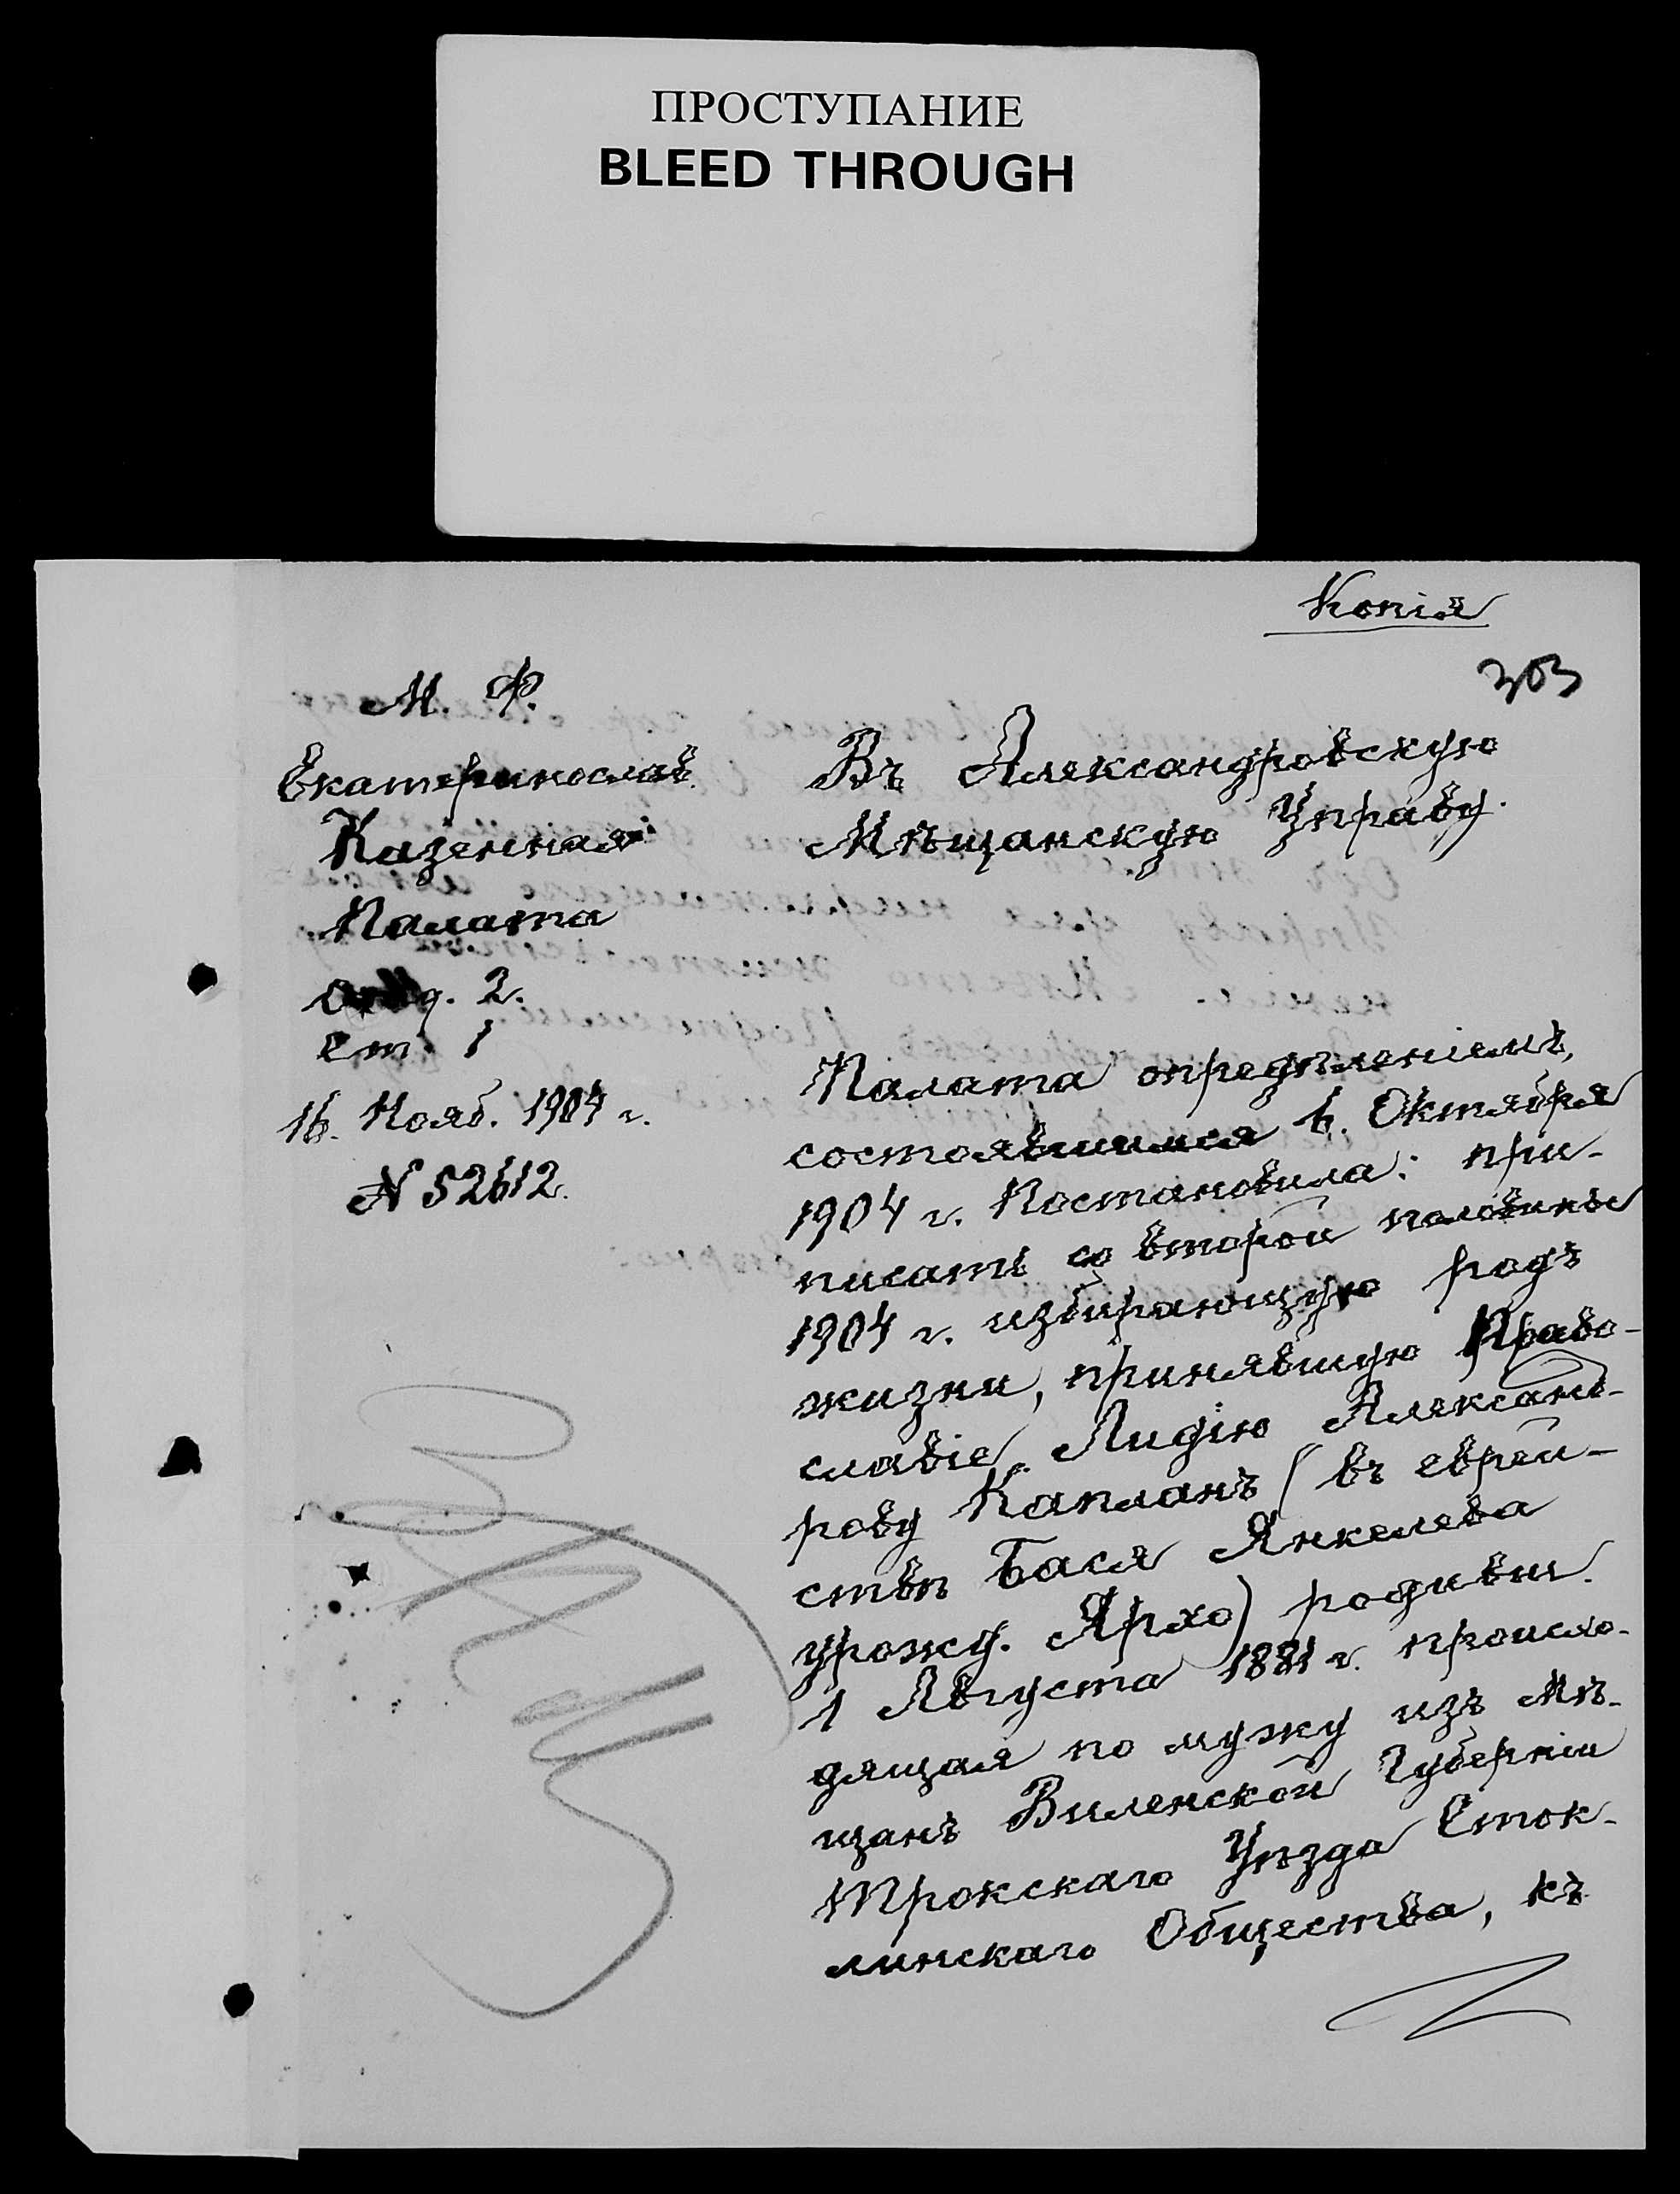 ПРОСТУПАНИЕ
BLEED THROUGH
Копія
303
М. Ф.
Екатеринослав.
Казенная
Палата
Отд. 2.
Ст. 1
16. Нояб. 1904 г.
N 52612.
Въ Александровскую
Мѣщанскую Управу.
Палата опредѣленіемъ,
состоявшимся 6. Октября
1904 г. Постановила: при-
писать со второй половины
1904 г. избирающую родъ
жизни, принявшую Право-
славіе Лидію Александ-
рову Капланъ (въ еврей-
ствѣ Бася Янкелева
урожд. Ярхо) родивш.
1 Августа 1881 г. происхо-
дящая по мужу из Мѣ-
щанъ Виленской Губерніи
Трокскаго Уѣзда Сток-
линскаго Общества, къ